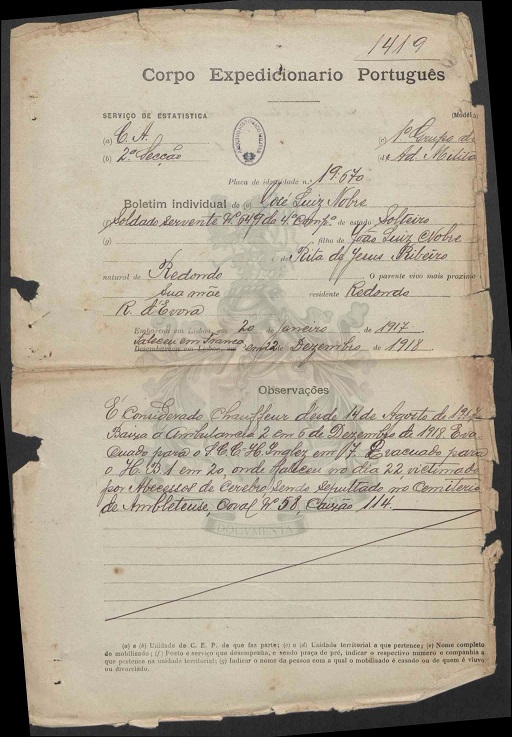 1419
Corpo Expedicionario Português
SERVIÇO DE ESTATISTICA
(Modelo
(a) C. A.
(c) 1º Grupo de
(b) 2ª Secção
(d) Ad. Milita
Placa de identidade n.º 19.670
Boletim individual de (e) José Luiz Nobre
(f) Soldado servente Nº 649 da 4ª Comp.ª de estado Solteiro
(g) filho de João Luiz Nobre
e de Rita de Jesus Ribeiro
natural de Redondo O parente vivo mais proximo
Sua mãe residente Redondo
R. d'Evora
Embarcou em Lisboa, em 20 de Janeiro de 1917
Faleceu em França
Desembarcou em Lisboa, em 22 de Dezembro de 1918
Observações
É Considerado Chauffeur desde 14 de Agosto de 1917
Baixa á Ambulancia 2 em 6 de Dezembro de 1918. Eva-
cuado para o H. C. C. H. Inglez em 17. Evacuado para
o H. B. 1 em 20, onde faleceu no dia 22 victimado
por Abcessos de cerebro, sendo sepultado no Cemiterio
de Ambleteuse, Coval Nº 58, Caixão 114.
DOCVMENTA
(a) e (b) Unidade do C. E. P. de que faz parte; (c) e (d) Unidade territorial a que pertence; (e) Nome completo
do mobilizado; (f) Posto e serviço que desempenha, e sendo praça de pré, indicar o respectivo numero e companhia a
que pertence na unidade territorial; (g) Indicar o nome da pessoa com a qual o mobilizado é casado ou de quem é viuvo
ou divorciado.